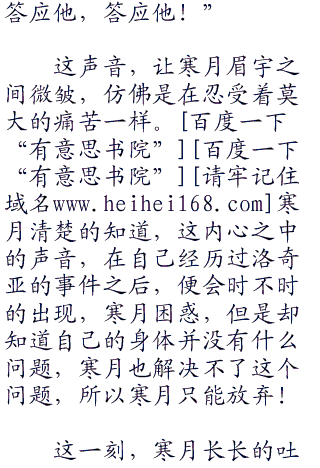 答应他，答应他！”
这声音，让寒月眉宇之
间微皱，仿佛是在忍受着莫
大的痛苦一样。[百度一下
“有意思书院”][百度一下
“有意思书院”][请牢记住
域名www.heihei168.com]寒
月清楚的知道，这内心之中
的声音，在自己经历过洛奇
亚的事件之后，便会时不时
的出现，寒月困惑，但是却
知道自己的身体并没有什么
问题，寒月也解决不了这个
问题，所以寒月只能放弃！
这一刻，寒月长长的吐